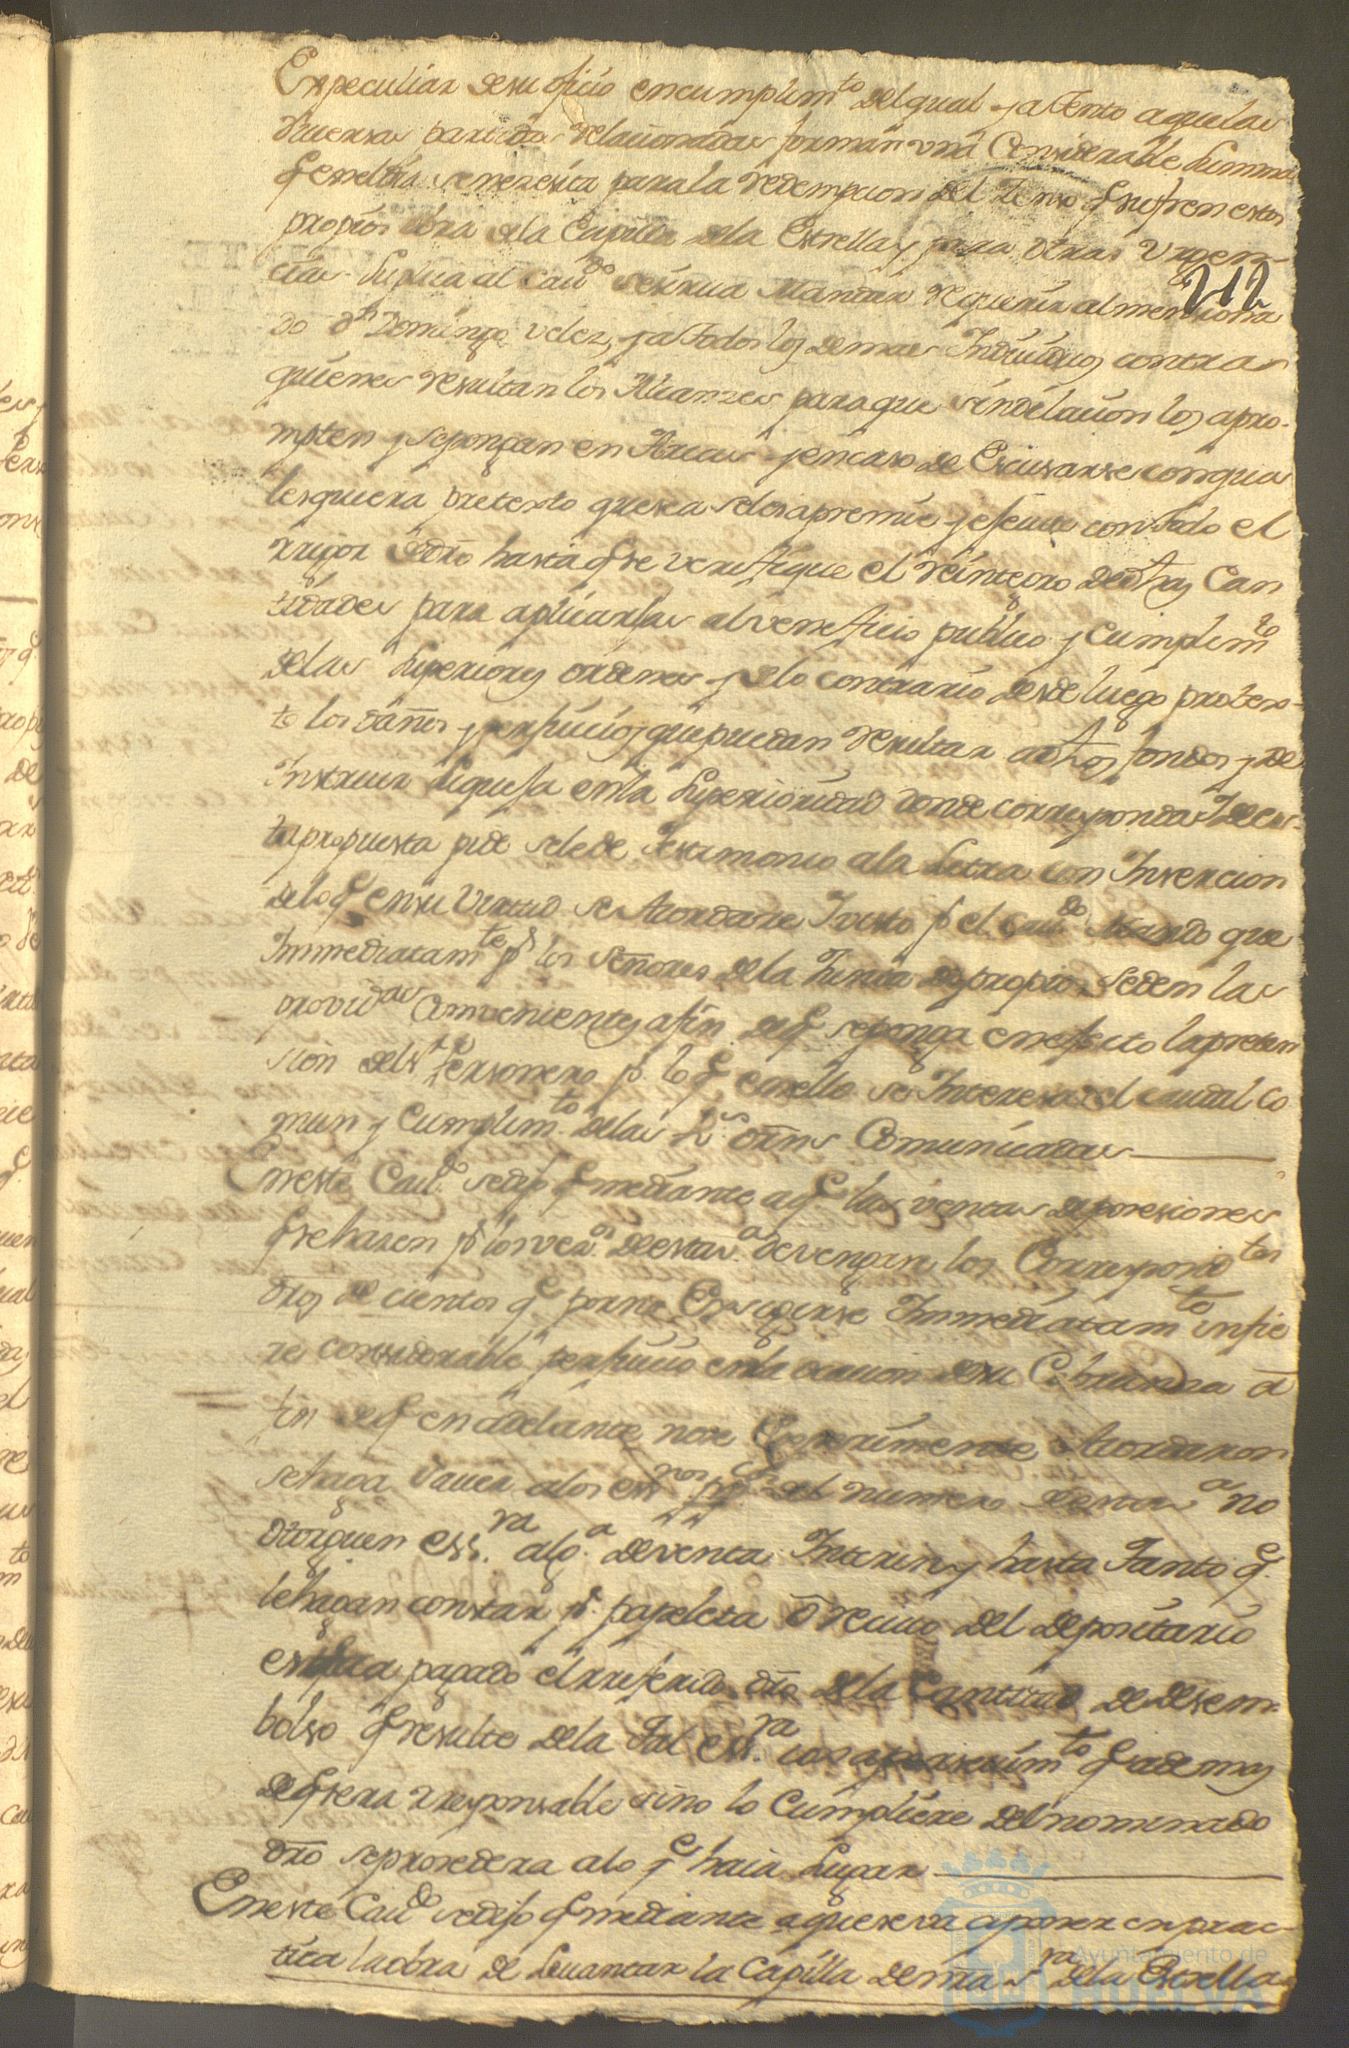 Es peculiar de su oficio en cumplimto del qual y atento a que las
diversas partidas relacionadas forman una Considerable Summa
q en el dia se nezesita para la redempcion del Zenso q sufren estos
propios obra de la Capilla de la Estrella y para otras Urgen-
cias Suplica al Cavdo se sirva Mandar requerir al menciona
212
do Dn Domingo Velez, y a todos los demas Individuos contra
quienes resultan los Alcanzes para que sin dilacion los apro-
mpten y se pongan en Arcas y en caso de Escusarse con qua
lesquiera pretexto que sea se les apremie y execute con todo el
rrigor de dro hasta q se verifique el reintegro de dhas Can
tidades para aplicarlas al veneficio publico y Cumplimto
de las Superiores ordenes y de lo contrario desde luego protes-
ta los daños y perjuicios que puedan resultar a dhos fondos y de
Instruir Siquesa en la Superioridad donde corresponda Y de es-
ta propuesta pide se le de testimonio a la Letra con Insercion
de lo q en su Virtud se Acordare Y visto pr el Cavdo Mando que
Immediatamte pr los Señores de la Junta de propios se den las
providas Convenientes a fin de q se ponga en efecto la preten
sion del Sr Personero pr lo q en ello se Interesa el caudal co
mun y Cumplimto de las Rs ordns Comunicadas
En este Cavdo se dijo q mediante a q las ventas de posesiones
q se hazen pr los vezos de esta va devengan los Correspondtes
dros de cientos q por no Exsigirse Immediatamte infie
re considerable perjuicio en la ocasion de su Cobranza a
fin de q en adelante no se Experimente Acordaron
se haga Saver a los essnos pcos del numero de esta va no
otorguen essra alga de venta Interin y hasta tanto q
le hagan constar pr papeleta o recivo del depositario
estar pagado el rreferido dro de la Cantidad de desem-
bolso q resulte de la tal essra con apersevimto q ademas
de q sera rresponsable sino lo Cumpliere del nominado
dro se prosedera a lo q haia Lugar
En este Cavdo se dijo q mediante a que se va a poner en prac-
tica la obra de Levantar la Capilla de nra Sra de la Estrella
Ayuntamiento de
HUELVA